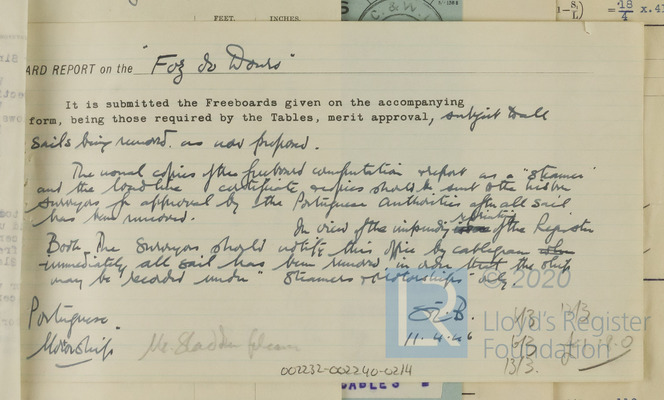 FEET. INCHES.
ARD REPORT on the "Foz do Douro"
It is submitted the Freeboards given on the accompanying
form, being those required by the Tables, merit approval, subject to all
sails being removed as now proposed.
The usual copies of the freeboard computation & report as a "steamer"
and the loadline certificate & copies should be sent to the Lisbon
surveyors for approval by the Portuguese Authorities after all sail
has been removed.
In view of the impending reprinting of the Register
Book the Surveyors should notify this office by cablegram
immediately all sail has been removed in order that the ship
may be recorded under "Steamers & Motorships" only.
Portuguese
"Motorship"
11.4.46
© 2020
Lloyd's Register
Foundation
13/3.
002232-002240-0214